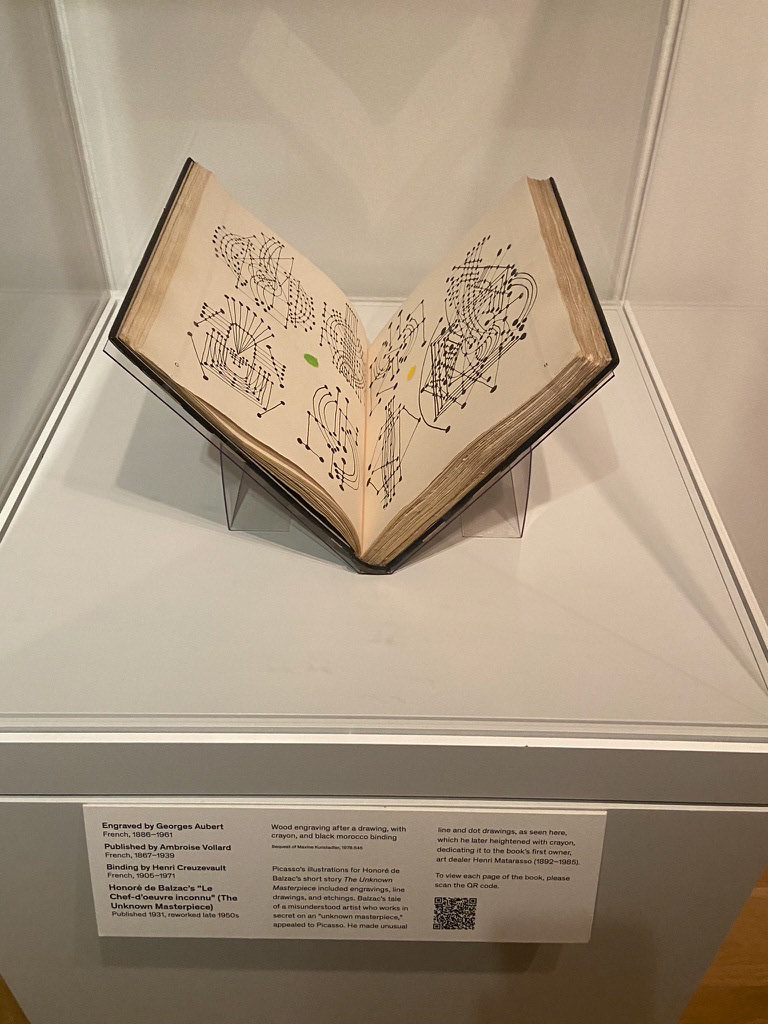 Engraved by Georges Aubert
French, 1886–1961
Published by Ambroise Vollard
French, 1867–1939
Binding by Henri Creuzevault
French, 1905–1971
Honoré de Balzac's "Le
Chef-d'oeuvre inconnu" (The
Unknown Masterpiece)
Published 1931, reworked late 1950s
Wood engraving after a drawing, with
crayon, and black morocco binding
Bequest of Maxine Kunstadter, 1978.545
Picasso's illustrations for Honoré de
Balzac's short story The Unknown
Masterpiece included engravings, line
drawings, and etchings. Balzac's tale
of a misunderstood artist who works in
secret on an "unknown masterpiece,"
appealed to Picasso. He made unusual
line and dot drawings, as seen here,
which he later heightened with crayon,
dedicating it to the book's first owner,
art dealer Henri Matarasso (1892–1985).
To view each page of the book, please
scan the QR code.